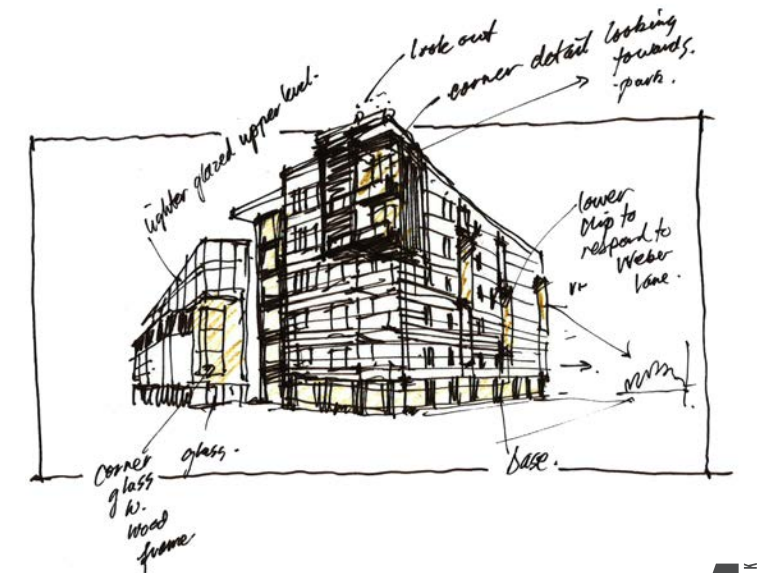 look out
corner detail looking
towards
park.
lighter glazed upper level.
lower
to
respond to
Weber
lane.
glass.
corner
glass
w.
wood
frame
base.